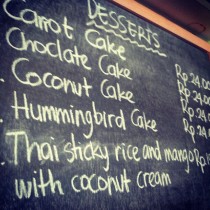 DESSERTS
Carrot Cake Rp 24.00
Choclate Cake Rp 24.0
. Coconut Cake Rp 24.
. Hummingbird Cake Rp 24
. Thai sticky rice and mango Rp
with coconut cream